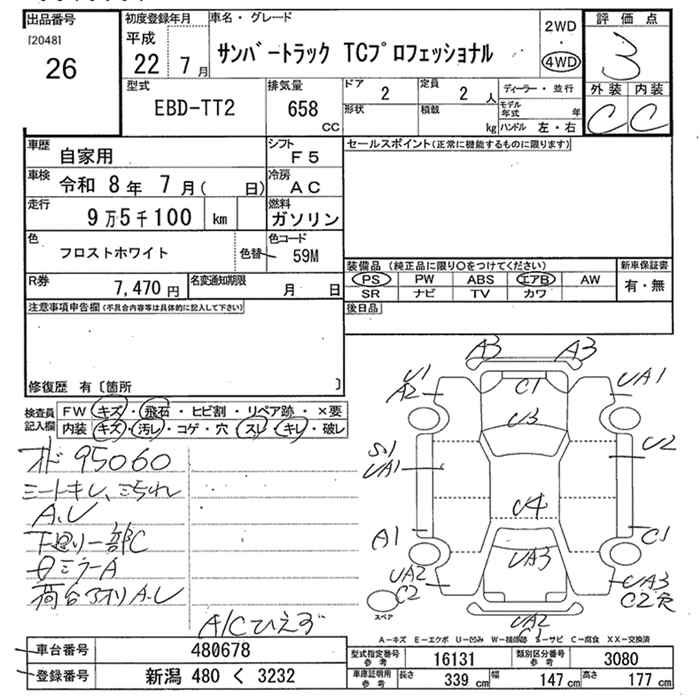 出品番号
[2048]
26
初度登録年月
平成
22 7月
車名・グレード
サンバートラック TCプロフェッショナル
2WD
・
4WD
評価点
3
外装 内装
C C
型式
EBD-TT2
排気量
658 CC
ドア 2
定員 2 人
形状
積載 kg
ディーラー・並行
モデル年式 年
ハンドル 左・右
車歴 自家用
シフト F5
車検 令和 8年 7月( 日)
冷房 AC
走行 9万5千100 km
燃料 ガソリン
色 フロストホワイト
色替
色コード 59M
R券 7,470円
名変通知期限 月 日
セールスポイント(正常に機能するものに限ります)
装備品 (純正品に限り○をつけてください)
PS PW ABS エアB AW
SR ナビ TV カワ
新車保証書
有・無
後日品
注意事項申告欄(不具合内容等は具体的に記入して下さい)
修復歴 有〔箇所 〕
検査員記入欄
FW キズ・飛石・ヒビ割・リペア跡・×要
内装 キズ・汚レ・コゲ・穴・スレ・キレ・破レ
95060
A.U
下廻り一部C
ミラーA
荷台アオリA.U
A/Cひえず
A3 A3
U1
A2
C1
UA1
U3
S1
UA1
U2
U4
A1
C1
UA3
UA2
C2
UA3
C2穴
UA2
C1
スペア
A-キズ E-エクボ U-凹み W-補修跡 S-サビ C-腐食 XX-交換済
車台番号 480678
登録番号 新潟 480 く 3232
型式指定番号 参考 16131
類別区分番号 参考 3080
車庫証明用 参考
長さ 339 cm
幅 147 cm
高さ 177 cm